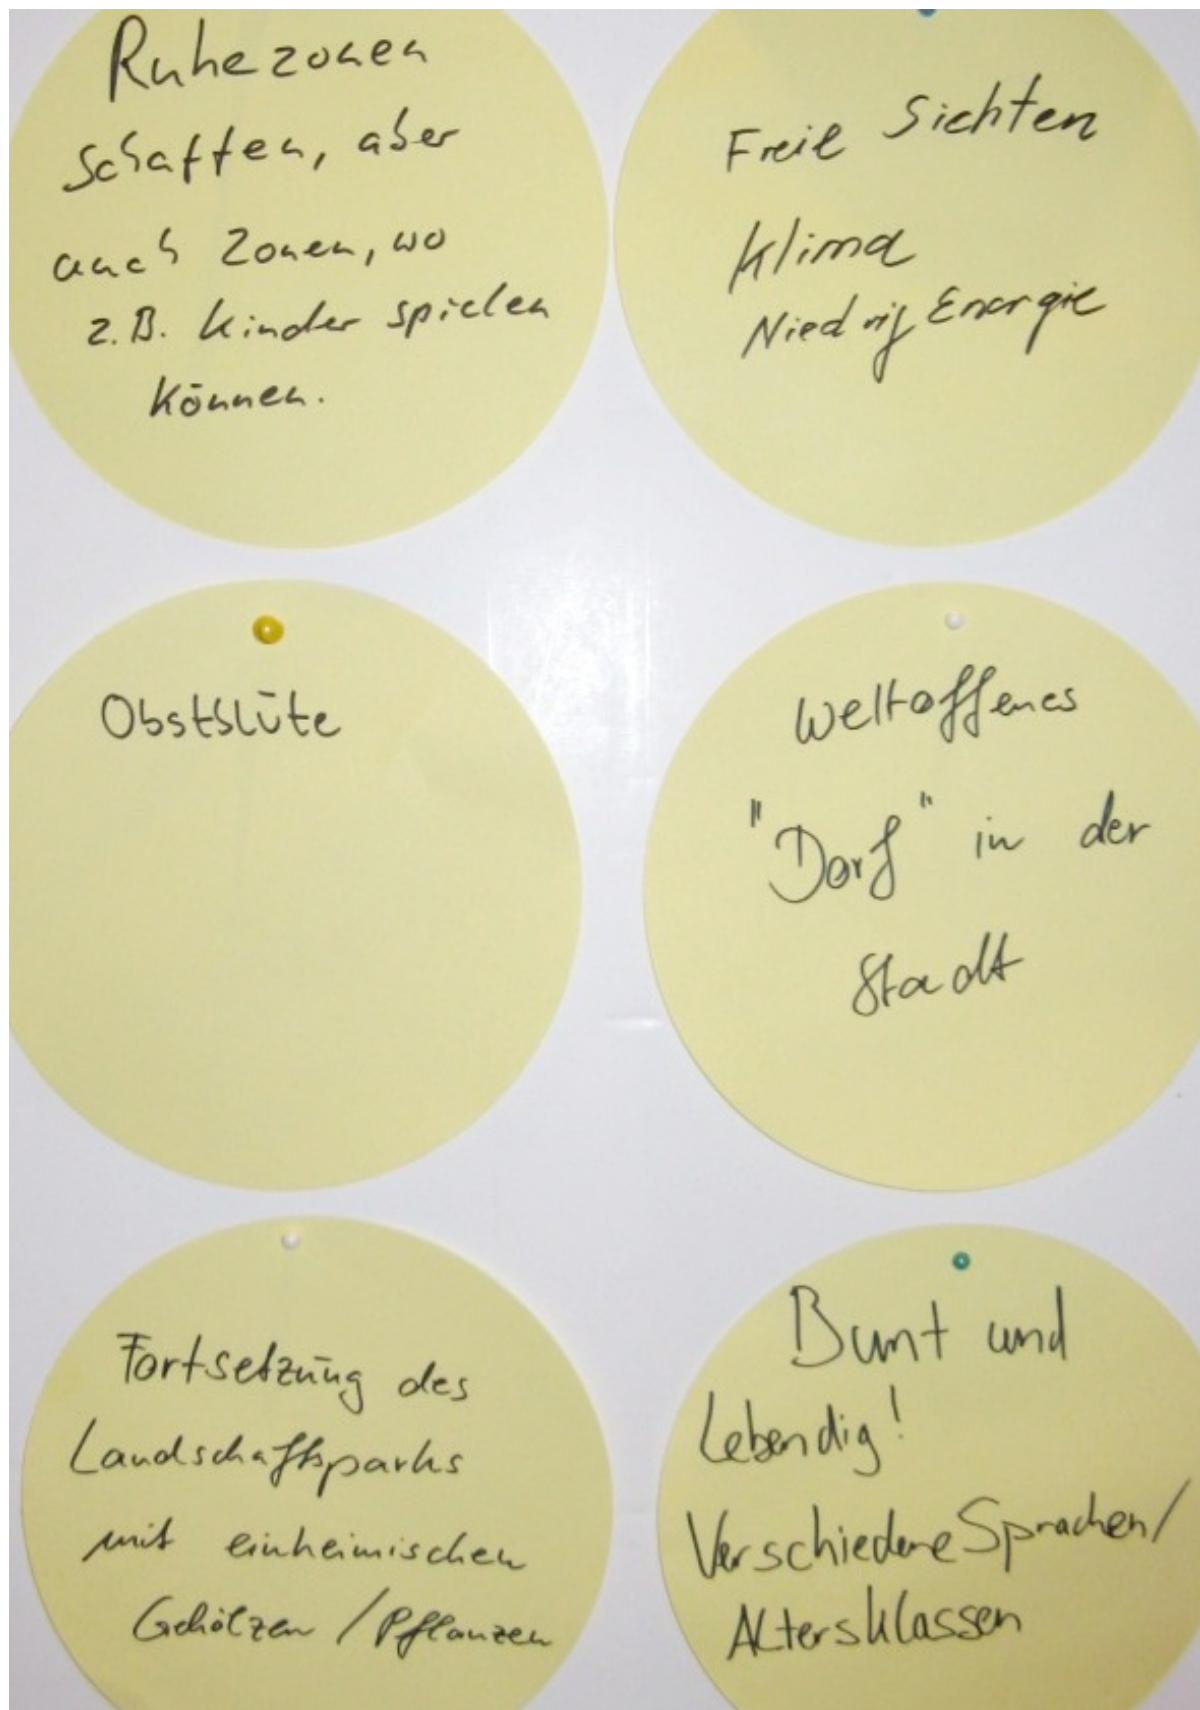 Ruhezonen
schaffen, aber
auch Zonen, wo
z.B. Kinder spielen
können.
Freie Sichten
Klima
Niedrig Energie
Obstblüte
Weltoffenes
"Dorf" in der
Stadt
Fortsetzung des
Landschaftsparks
mit einheimischen
Gehölzen / Pflanzen
Bunt und
Lebendig!
Verschiedene Sprachen/
Altersklassen